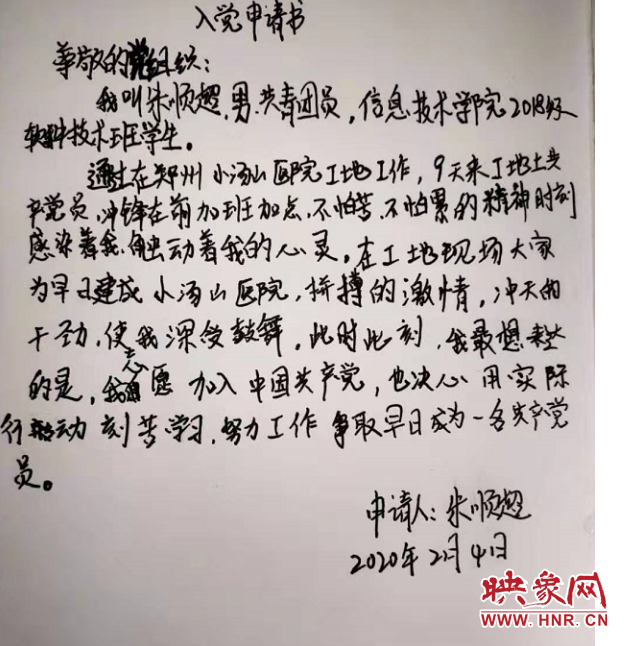 入党申请书
尊敬的党组织：
我叫朱顺超，男，共青团员，信息技术学院2018级
软件技术班学生。
通过在郑州小汤山医院工地工作，9天来工地上共
产党员，冲锋在前加班加点，不怕苦、不怕累的精神时刻
感染着我，触动着我的心灵。在工地现场大家
为早日建成小汤山医院，拼搏的激情，冲天的
干劲，使我深受鼓舞，此时此刻，我最想
的是，我志愿加入中国共产党，也决心用实际
行动刻苦学习，努力工作争取早日成为一名共产党
员。
申请人：朱顺超
2020年2月4日
映象网
WWW.HNR.CN